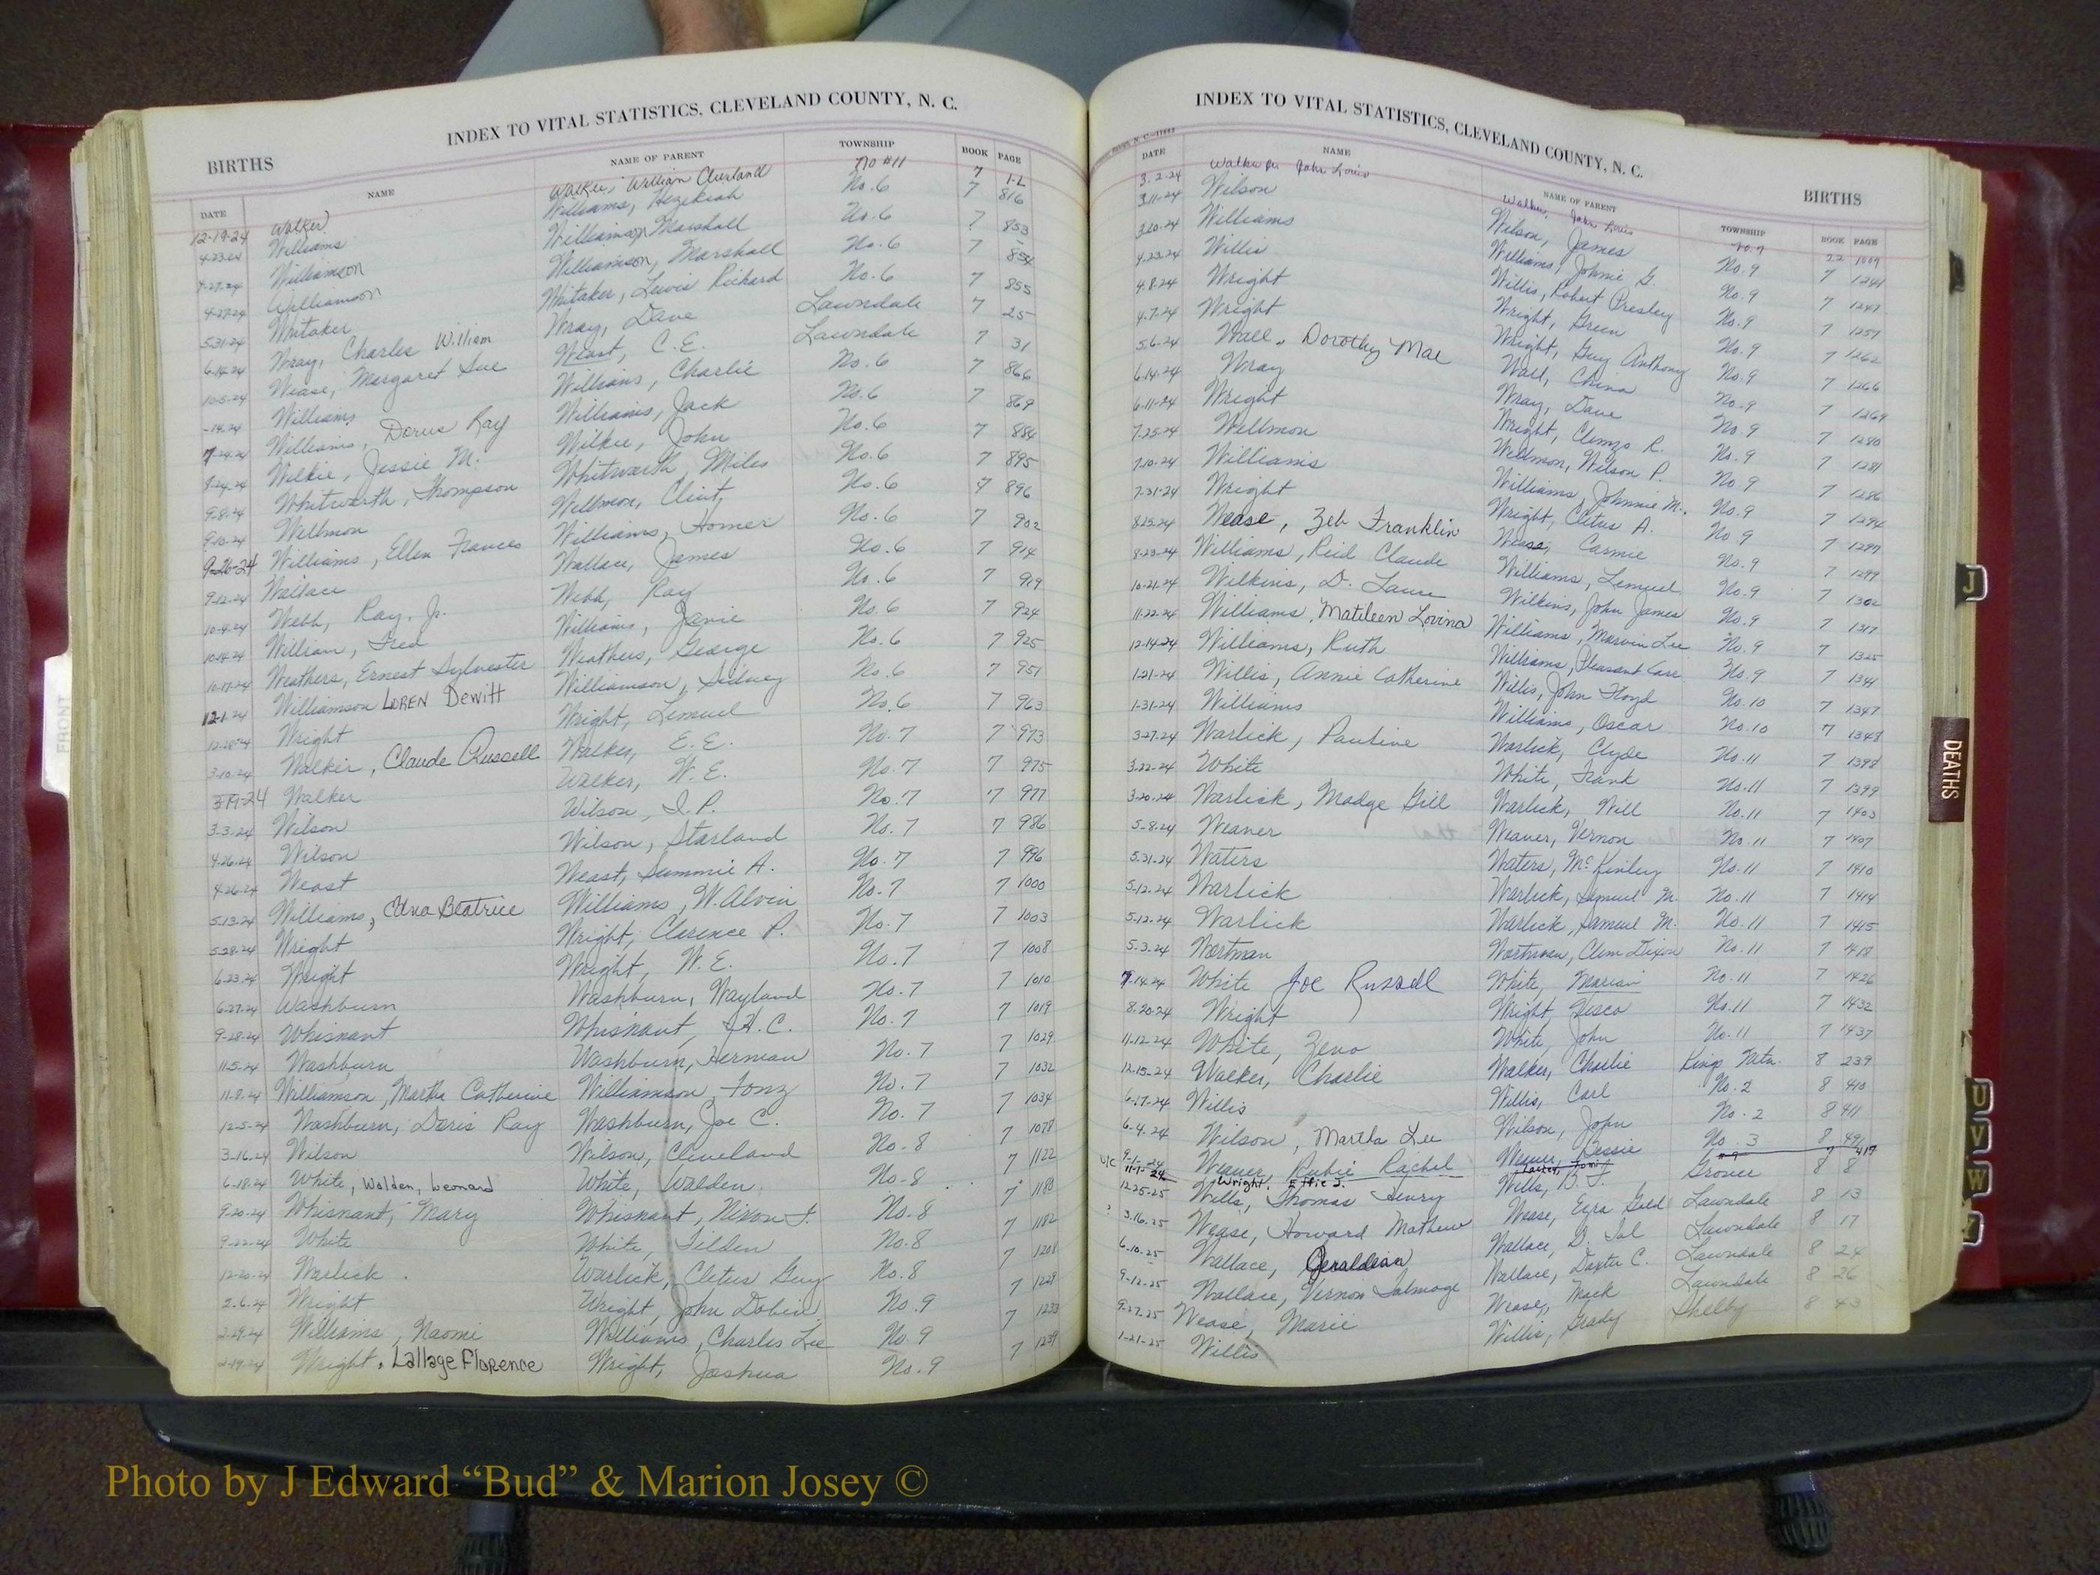 INDEX TO VITAL STATISTICS, CLEVELAND COUNTY, N. C.
BIRTHS
DATE NAME NAME OF PARENT TOWNSHIP BOOK PAGE
12-19-24 Walker Walker, William No #11 7
4-23-24 Williams Williams, Hezekiah No. 6 7 816
4-27-24 Williamson Williamson, Marshall No. 6 7 853
4-27-24 Williamson Williamson, Marshall No. 6 7 854
5-31-24 Whitaker Whitaker, Lewis Richard No. 6 7 855
6-14-24 Wray, Charles William Wray, Dave Lawndale 7 25
10-5-24 Wease, Margaret Sue Weast, C. E. Lawndale 7 31
-14-24 Williams Williams, Charlie No. 6 7 866
7-24-24 Williams, Dorus Ray Williams, Jack No. 6 7 869
8-24-24 Wilkie, Jessie M. Wilkie, John No. 6 7 884
9-8-24 Whitworth, Thompson Whitworth, Miles No. 6 7 895
9-10-24 Wellmon Wellmon, Clint No. 6 7 896
9-26-24 Williams, Ellen Frances Williams, Homer No. 6 7 902
9-12-24 Wallace Wallace, James No. 6 7 914
10-4-24 Webb, Ray, Jr. Webb, Ray No. 6 7 919
10-14-24 William, Fred Williams, Janie No. 6 7 924
10-17-24 Weathers, Ernest Sylvester Weathers, George No. 6 7 925
12-1-24 Williamson LOREN Dewitt Williamson, Sidney No. 6 7 951
12-28-24 Wright Wright, Lemuel No. 6 7 963
3-10-24 Walker, Claude Russell Walker, E. E. No. 7 7 973
3-19-24 Walker Walker, W. E. No. 7 7 975
3-3-24 Wilson Wilson, I. P. No. 7 7 977
4-26-24 Wilson Wilson, Starland No. 7 7 986
4-26-24 Weast Weast, Summie A. No. 7 7 996
5-13-24 Williams, Edna Beatrice Williams, W. Alvin No. 7 7 1000
5-28-24 Wright Wright, Clarence P. No. 7 7 1003
6-23-24 Wright Wright, W. E. No. 7 7 1008
6-27-24 Washburn Washburn, Wayland No. 7 7 1010
9-28-24 Whisnant Whisnant, H. C. No. 7 7 1019
11-5-24 Washburn Washburn, Herman No. 7 7 1029
11-8-24 Williamson, Martha Catherine Williamson, Tonz No. 7 7 1032
12-5-24 Washburn, Doris Ray Washburn, Joe C. No. 7 7 1034
3-16-24 Wilson Wilson, Cleveland No. 8 7 1078
6-18-24 White, Walden, Leonard White, Walden No. 8 7 1122
9-20-24 Whisnant, Mary Whisnant, Nixon T. No. 8 7 1180
9-22-24 White White, Tilden No. 8 7 1182
12-20-24 Warlick Warlick, Cletus Guy No. 8 7 1208
2-6-24 Wright Wright, John Dobin No. 9 7 1228
2-29-24 Williams, Naomi Williams, Charles Lee No. 9 7 1233
2-19-24 Wright, Lallage Florence Wright, Joshua No. 9 7 1239
INDEX TO VITAL STATISTICS, CLEVELAND COUNTY, N. C.
BIRTHS
DATE NAME NAME OF PARENT TOWNSHIP BOOK PAGE
3-2-24 Walker Jr. John Louis Walker, John Louis No. 7 22 1009
3-11-24 Wilson Wilson, James No. 9 7 1241
3-20-24 Williams Williams, Johnie G. No. 9 7 1247
4-23-24 Willis Willis, Robert Presley No. 9 7 1257
4-8-24 Wright Wright, Green No. 9 7 1262
4-7-24 Wright Wright, Guy Anthony No. 9 7 1266
5-6-24 Wall, Dorothy Mae Wall, China No. 9 7 1269
6-14-24 Wray Wray, Dave No. 9 7 1280
6-11-24 Wright Wright, Clemzo R. No. 9 7 1281
7-25-24 Wellmon Wellmon, Wilson P. No. 9 7 1286
7-10-24 Williams Williams, Johnnie M. No. 9 7 1294
7-31-24 Wright Wright, Cletus A. No 9 7 1297
8-25-24 Wease, Zeb Franklin Wease, Carmie No. 9 7 1299
8-23-24 Williams, Reid Claude Williams, Lemuel No. 9 7 1302
10-21-24 Wilkins, D. Laure Wilkins, John James No. 9 7 1317
11-22-24 Williams, Matileen Lovina Williams, Marvin Lee No. 9 7 1325
12-14-24 Williams, Ruth Williams, Pleasant Carr No. 9 7 1341
1-21-24 Willis, Annie Catherine Willis, John Floyd No. 10 7 1347
1-31-24 Williams Williams, Oscar No. 10 7 1348
3-27-24 Warlick, Pauline Warlick, Clyde No. 11 7 1398
3-22-24 White White, Frank No. 11 7 1399
3-20-24 Warlick, Madge Gill Warlick, Will No. 11 7 1403
5-8-24 Weaver Weaver, Vernon No. 11 7 1407
5-31-24 Waters Waters, McKinley No. 11 7 1410
5-12-24 Warlick Warlick, Samuel M. No. 11 7 1414
5-12-24 Warlick Warlick, Samuel M. No. 11 7 1415
5-3-24 Wortman Wortman, Clem Dixon No. 11 7 1418
7-14-24 White Joe Russell White, Marian No. 11 7 1426
8-20-24 Wright Wright, Sisco No. 11 7 1432
11-12-24 White, Zeno White, John No. 11 7 1437
12-15-24 Walker, Charlie Walker, Charlie Kings Mtn. 8 239
6-17-24 Willis Willis, Carl No. 2 8 410
6-4-24 Wilson, Martha Lee Wilson, John No. 2 8 411
9-1-24 Weaver, Rubie Rachel Weaver, Bessie No. 3 8 491
11-7-24 Wright, Effie J. 7 417
12-25-25 Wills, Thomas Henry Wills, B. F. Grover 8 8
3-16-25 Wease, Howard Mathew Wease, Ezra Gold Lawndale 8 13
6-10-25 Wallace, Geraldean Wallace, D. Sol Lawndale 8 17
9-12-25 Wallace, Vernon Talmage Wallace, Daxter C. Lawndale 8 24
9-27-25 Wease, Marie Wease, Mack Lawndale 8 26
1-21-25 Willis Willis, Grady Shelby 8 43
FRONT
J
DEATHS
U
V
W
Photo by J Edward “Bud” & Marion Josey ©